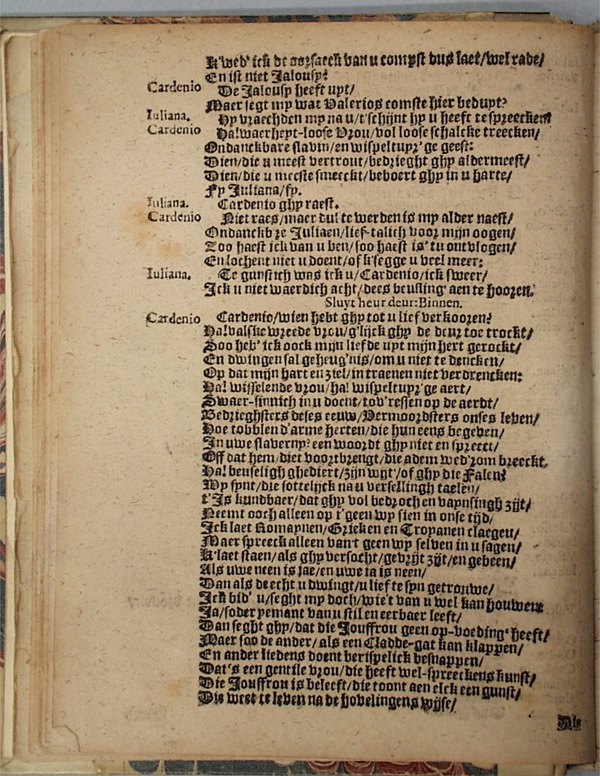 K'wed' ick de oorsaeck van u compst dus laet/wel rade/
En ist niet Jalousy?
Cardenio De Jalousy heeft uyt/
Maer segt my wat Valerios comste hier beduyt?
Iuliana. Hy vraechden my na u/t'schijnt hy u heeft te spreecken
Cardenio Ha! waerheyt-loose Vrou/vol loose schalcke treecken/
Ondanckbare slavin/en wispeltuyr'ge geest:
Dien/die u meest vertrout/bedrieght ghy aldermeest/
Dien/die u meeste smeeckt/ ghy in u harte/
Fy Juliana/fy.
Iuliana. Cardenio ghy raest.
Cardenio Niet raes/maer dul te werden is my alder naest/
Ondanckbre Juliaen/lief-talich voor mijn oogen/
Zoo haest ick van u ben/soo haest is't u ontvlogen/
En lochent niet u doent/of k'segge u veel meer:
Iuliana. Te gunstich was ick u/Cardenio/ick sweer/
Ick u niet waerdich acht/dees beusling' aen te hooren.
Sluyt heur deur: Binnen.
Cardenio Cardenio/wien hebt ghy tot u lief verkooren?
Ha! valske wreede vrou/g'lijck ghy de deur toe trockt/
Soo heb' ick oock mijn liefde uyt mijn hert gerockt/
En dwingen sal geheug'nis/om u niet te dencken/
Op dat mijn hart en ziel/in traenen niet verdrencken:
Ha! wisselende vrou/ha! wispeltuyr'ge aert/
Swaer-sinnich in u doent/tov'ressen op de aerdt/
Bedrieghsters deses eeuw/Vermoordsters onses leven/
Hoe tobblen d'arme herten/die hun eens begeven/
In uwe slaverny? een woordt ghy niet en spreect/
Off dat hem/diet voortbrengt/die adem wed'rom breeckt.
Ha! beuseligh ghediert/zijn wijt'/of ghy die Falen?
Wy sijnt/die sottelijck na u versellingh taelen/
t'Is kundbaer/dat ghy vol bedroch en vaynsingh zijt/
Neemt ooch alleen op t'geen wy sien in onse tijd/
Ick laet Romaynen/Grieken en Troyanen claegen/
Maer spreeck alleen van't geen wy selven in u sagen/
K'laet staen/als ghy versocht/gevrijt zijt/en gebeen/
Als uwe neen is jae/en uwe ia is neen/
Dan als de echt u dwingt/u lief te syn getrouwe/
Ick bid' u/seght my doch/wie't van u wel kan houwen:
Ja/soder yemant van u stil en eerbaer leeft/
Dan seght ghy/dat die Jouffrou geen op-voeding' heeft/
Maer soo de ander/als een Cladde-gat kan klappen/
En ander liedens doent berispelick besnappen/
Dat's een gentile vrou/die heeft wel-spreeckens kunst/
Die Jouffrou is beleeft/die toont aen elck een gunst/
Die weet te leven na de hovelingens wijse/
Die